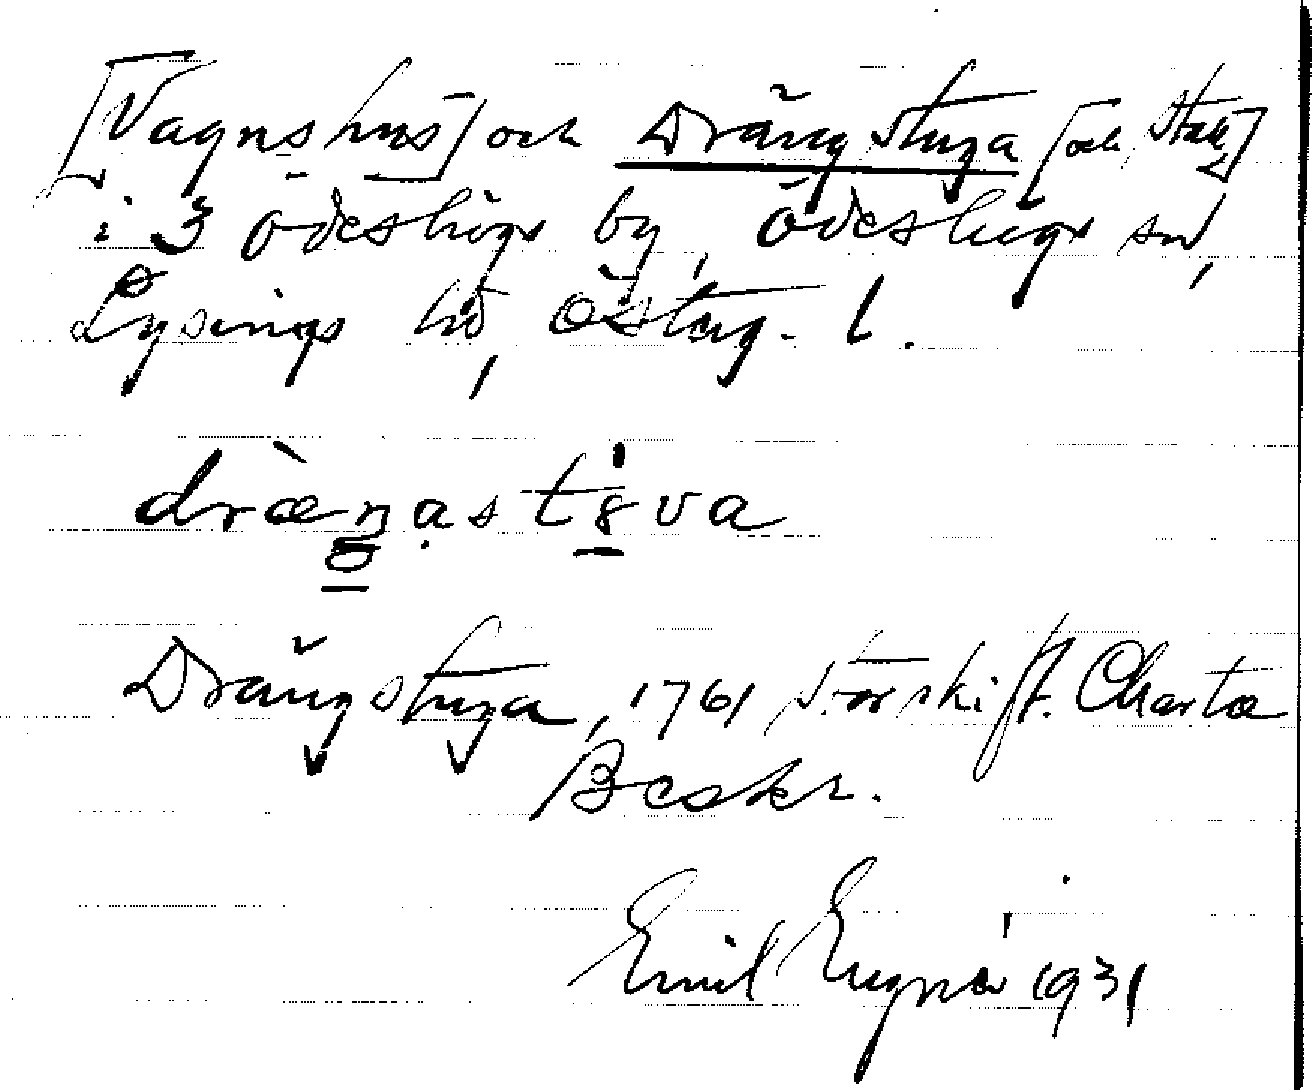 [Vagnshus] och Drängstuga [och Stall]
i 3 Ödeshögs by, Ödeshögs sn,
Lysings hd, Österg. l.
dræ̀ŋastꞷva
Drängstuga, 1761 Storskift. Charta
Beskr.
Emil Engnå 1931